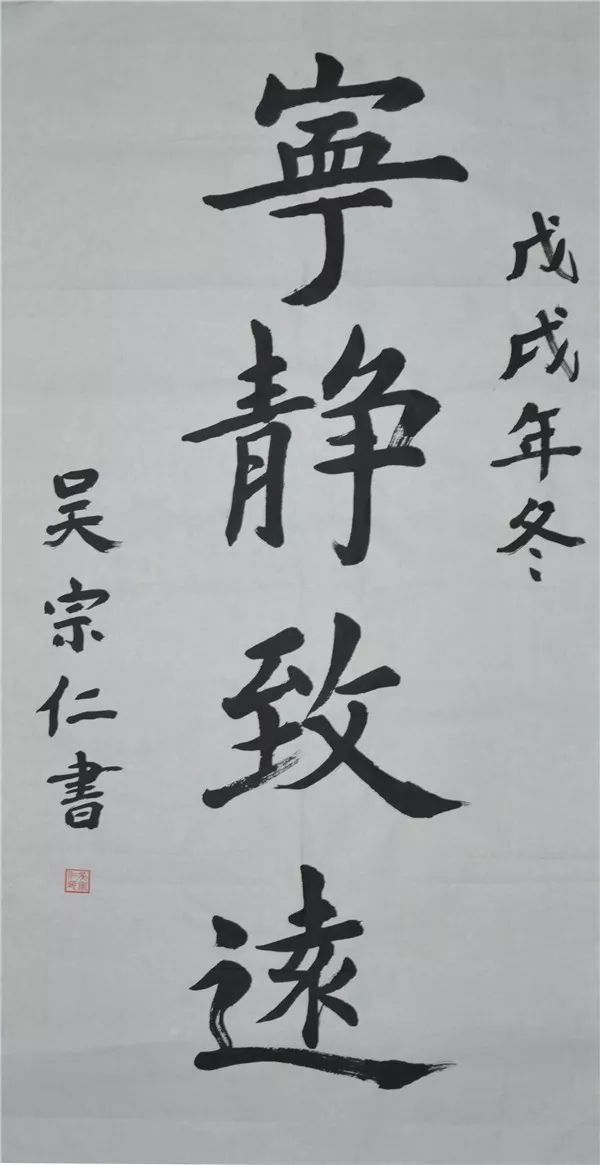 戊戌年冬
寧静致遠
吴宗仁書